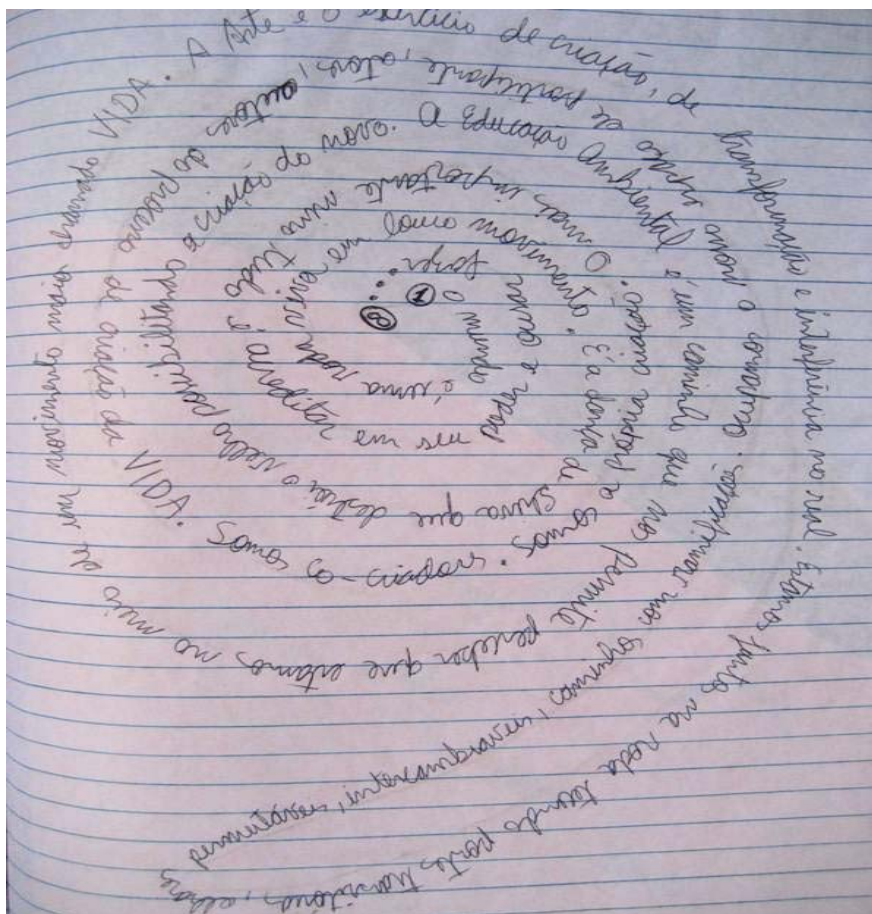 O mundo é uma roda viva em louco movimento. É a dança de Shiva que destrói o velho possibilitando a criação do novo. A Educação Ambiental é um caminho que nos permite perceber que estamos no meio de um movimento maior chamado VIDA. A Arte é o exercício de criação, de transformação e interferência no real. Estamos juntos na roda tecendo pontes transitórias,
permutáveis, intercambiáveis, com ramificações. Ocupamos o novo espaço de participante, atores, autores do processo de criação da VIDA. Somos co-criadores. Somos a própria criação. O mais importante nisso tudo é acreditar em seu poder e ousar fazer...
1